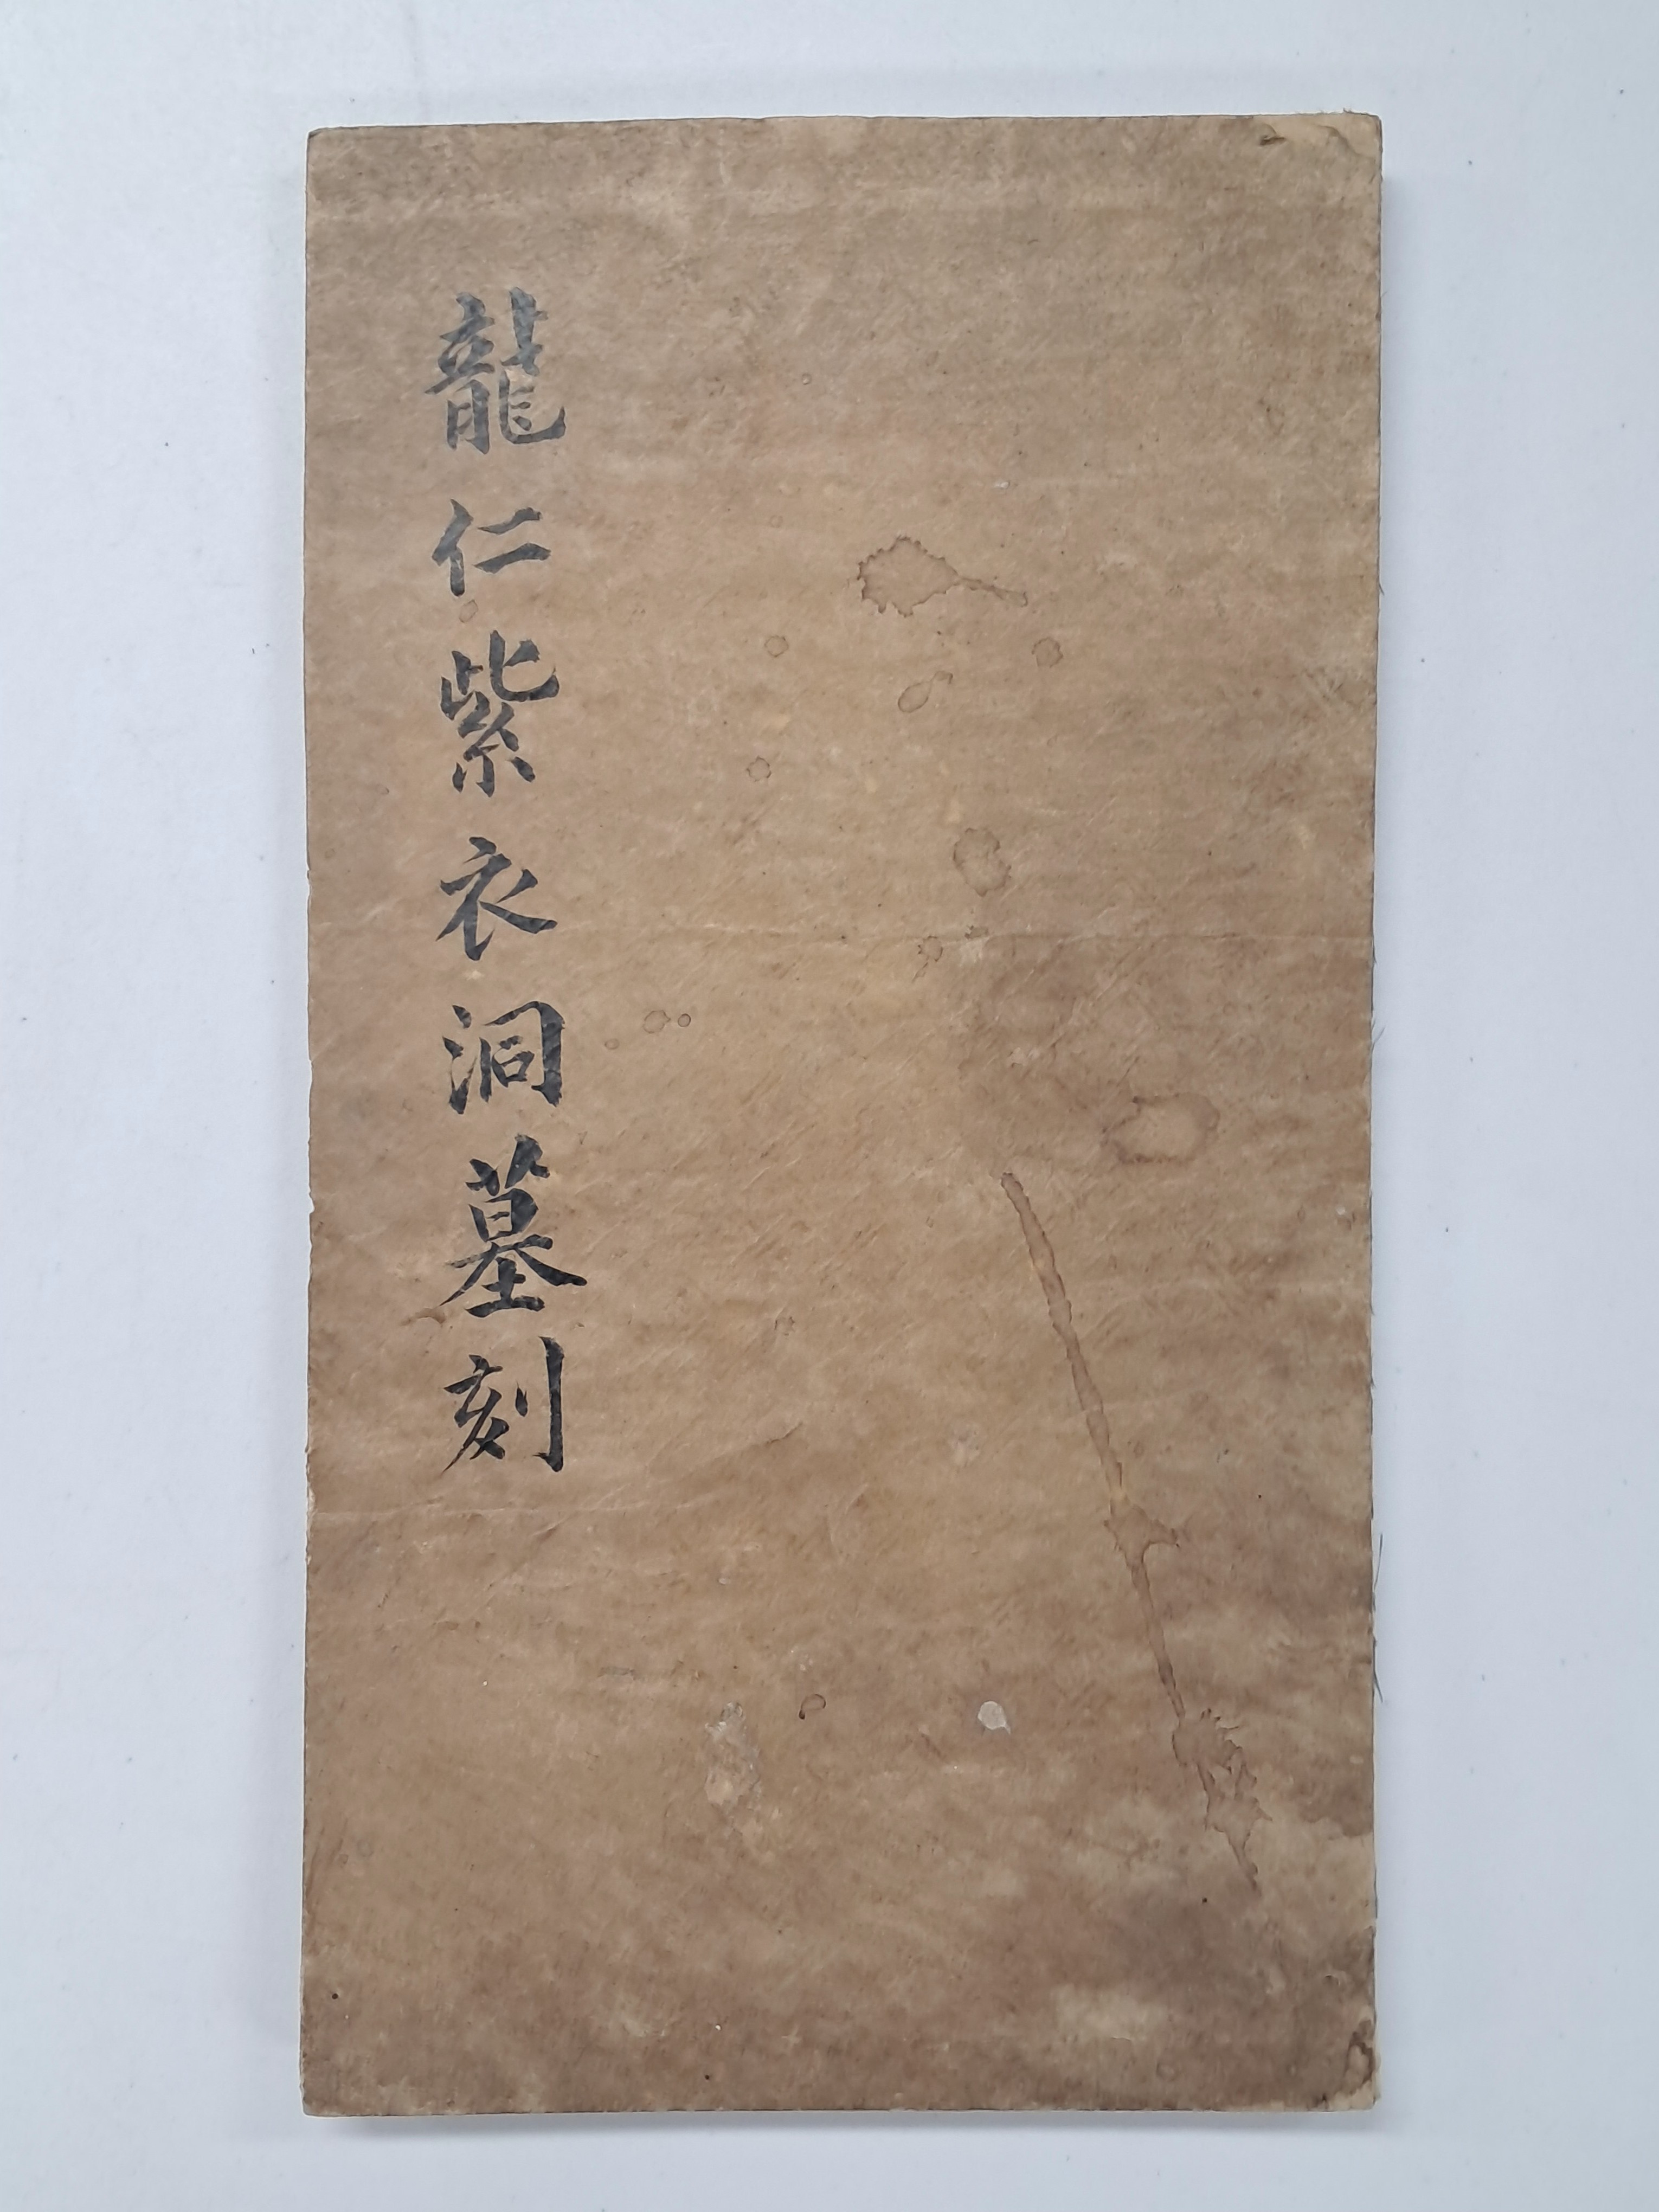 龍仁紫衣洞墓刻